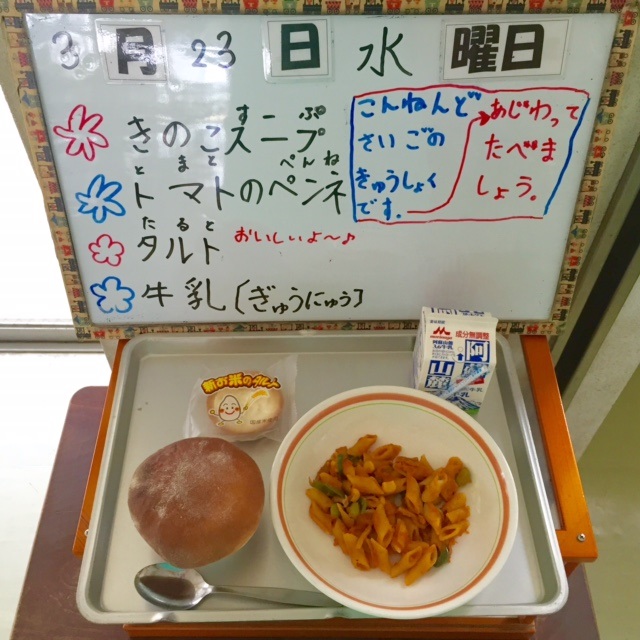 3月23日水曜日
すーぷ
きのこスープ
とまと ぺんね
トマトのペンネ
たると
タルト おいしいよ〜♪
牛乳〔ぎゅうにゅう〕
こんねんど
さいごの
きゅうしょく
です。
あじわって
たべま
しょう。
お米のタルト
成分無調整